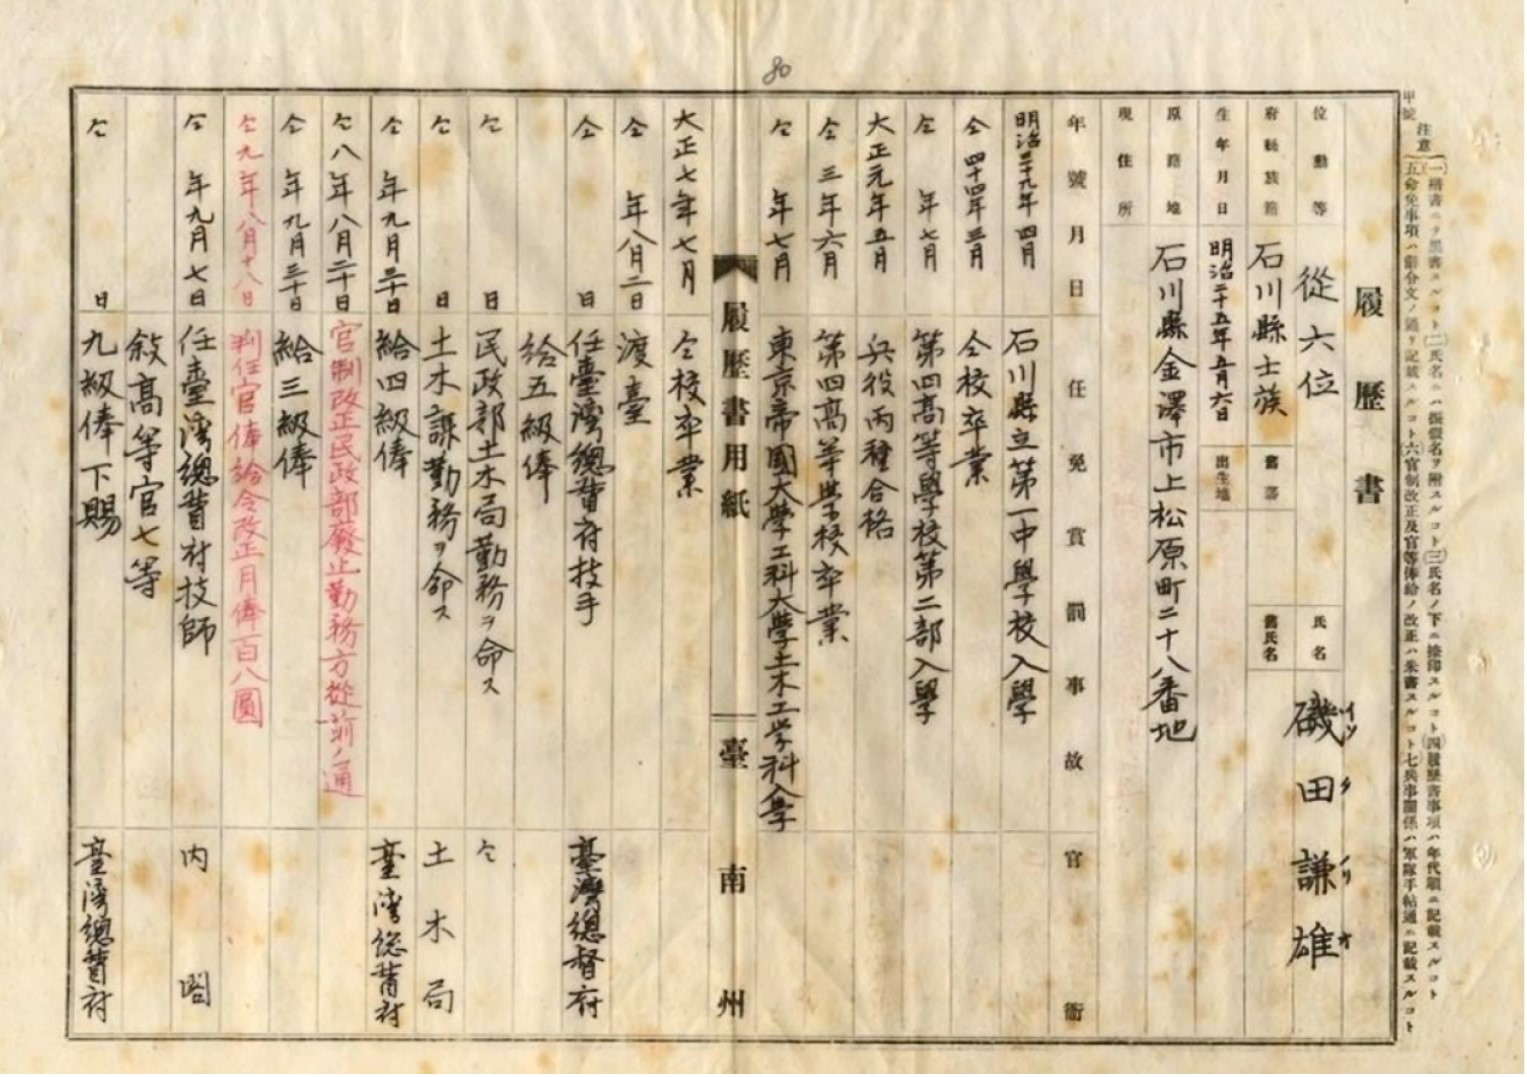 80
甲號
注意
(一)楷書ニテ墨書スルコト(二)氏名ニハ振假名ヲ附スルコト(三)氏名ノ下ニ捺印スルコト(四)履歷書事項ハ年代順ニ記載スルコト
五命免事項ハ辭令文ノ通リ記載スルコト六官制改正及官等俸給ノ改正ハ朱書スルコト七兵事關係ハ軍隊手帖通ニ記載スルコト
履歷書
位勳等 從六位 氏名 磯田謙雄
イソタノリオ
府縣族籍 石川縣士族 舊藩 舊氏名
生年月日 明治二十五年五月六日 出生地
原籍地 石川縣金澤市上松原町二十八番地
現住所
年號月日 任免賞罰事故 官衙
明治三十九年四月 石川縣立第一中學校入學
仝四十四年三月 仝校卒業
仝年七月 第四高等學校第二部入學
大正元年五月 兵役丙種合格
仝三年六月 第四高等学校卒業
仝年七月 東京帝國大學工科大學土木工学科入學
履歷書用紙 臺南州
大正七年七月 仝校卒業
仝年八月二日 渡臺
仝日 任臺灣總督府技手 臺灣總督府
給五級俸
仝日 民政部土木局勤務ヲ命ス 仝
仝日 土木課勤務ヲ命ス 土木局
仝年九月三十日 給四級俸 臺灣總督府
仝八年八月二十日 官制改正民政部廢止勤務方從前ノ通
仝年九月三十日 給三級俸
仝九年八月十八日 判任官俸給令改正月俸百八圓
仝年九月七日 任臺灣總督府技師 內閣
敍高等官七等
仝日 九級俸下賜 臺灣總督府